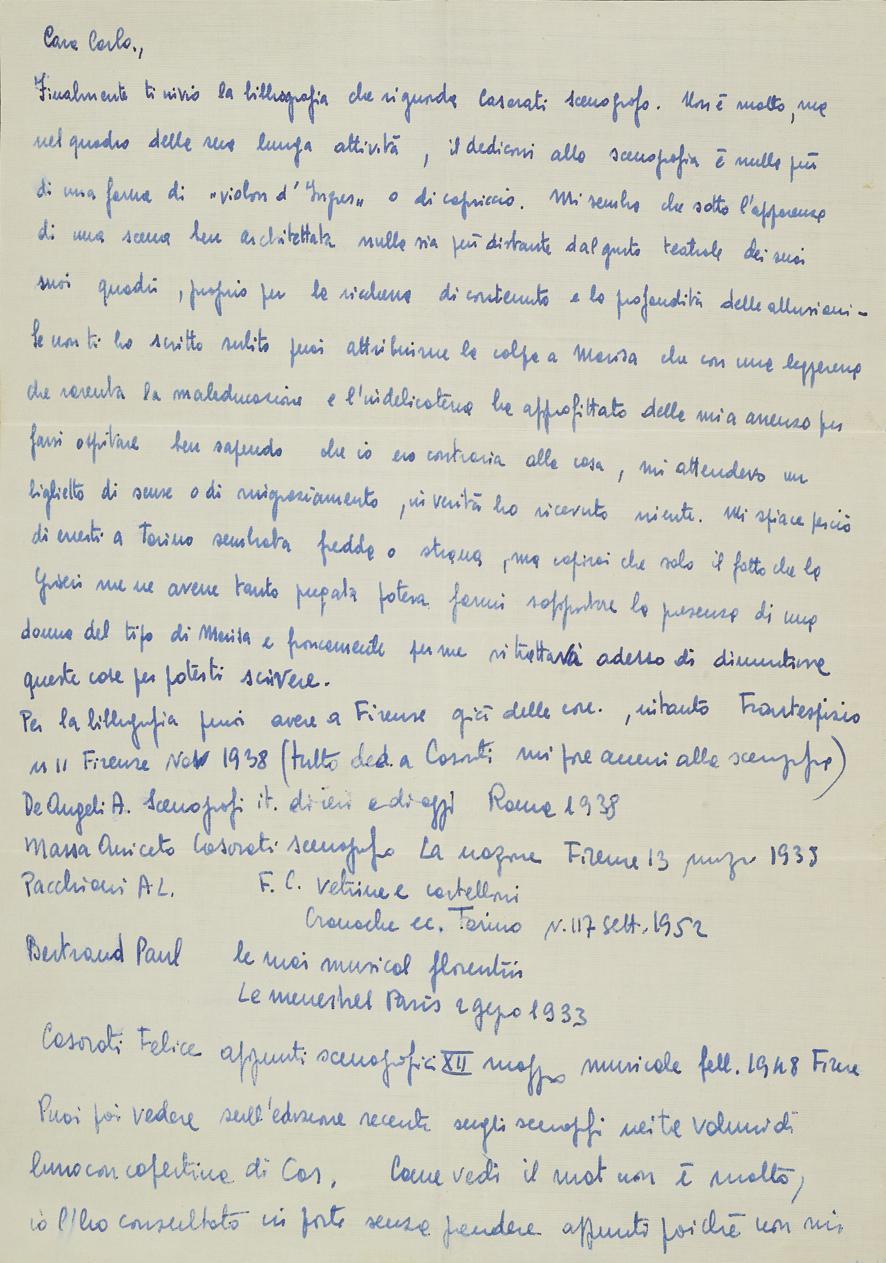 Caro Carlo,
Finalmente ti invio la bibliografia che riguarda Casorati scenografo. Non è molto, ma
nel quadro della sua lunga attività, il dedicarsi alla scenografia è nulla più
di una forma di "violon d'Ingres" o di capriccio. Mi sembra che sotto l'apparenza
di una scena ben architettata nulla sia più distante dal gusto teatrale dei suoi
suoi quadri, proprio per la ricchezza di contenuto e la profondità delle allusioni-
Se non ti ho scritto subito puoi attribuirne la colpa a Marisa che con una leggerezza
che rasenta la maleducazione e l'indelicatezza ha approfittato della mia assenza per
farsi ospitare ben sapendo che io ero contraria alla cosa, mi attendevo un
biglietto di scuse o di ringraziamento, in verità ho ricevuto niente. Mi spiace perciò
di esserti a Torino sembrata fredda o strana, ma capirai che solo il fatto che la
me ne avesse tanto pregata poteva farmi sopportare la presenza di una
donna del tipo di Marisa e francamente per me si trattava adesso di dimenticare
queste cose per poterti scrivere.
Per la bibliografia puoi avere a Firenze già delle cose., intanto Frontespizio
n 11 Firenze Nov 1938 (tutto ded. a Casorati mi pare accenni alla scenografia)
De Angeli A. Scenografi it. di ieri e di oggi Roma 1938
Massa Aniceto Casorati scenografo La nazione Firenze 13 1933
Pacchioni A L. F. C. Vetrine e cartelloni
Cronache ec. Torino N. 117 Sett. 1952
Bertrand Paul le mai musical florentin
Le menestrel Paris 2 1933
Casorati Felice appunti scenografici XII maggio musicale 1948 Firenze
Puoi poi vedere sull'edizione recente sugli scenografi nei te volumi di
con copertina di Cas. Come vedi il mat non è molto,
io l'ho consultato in parte senza prendere appunti poiché non mi